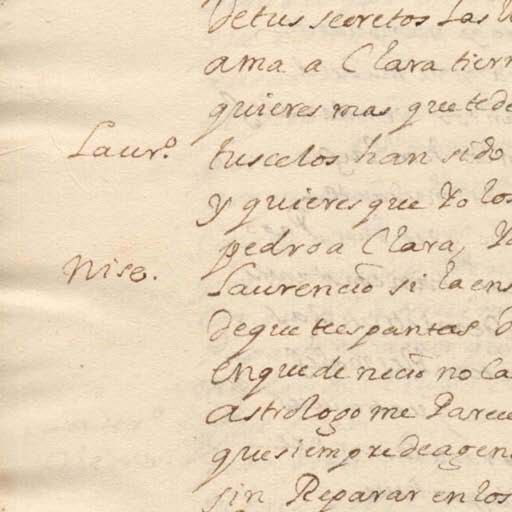 de tus secretos las
ama a Clara tiern
quieres mas que te de
Laur.º tus celos han sido
y quieres que Yo los
pedro a Clara, Y
Nise. Laurencio si la ens
de que te espantas
en que de necio no
Astrologo me Parece
que siempre de agen
sin Reparar en los